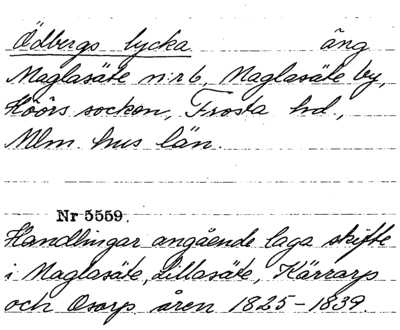 Ödbergs lycka äng
Maglasäte n:r 6, Maglasäte by,
Höörs socken, Frosta hd.,
Mlm. hus län.
Nr 5559.
Handlingar angående laga skifte
i Maglasäte, Lillasäte, Kärrarp
och Osarp åren 1825–1839.